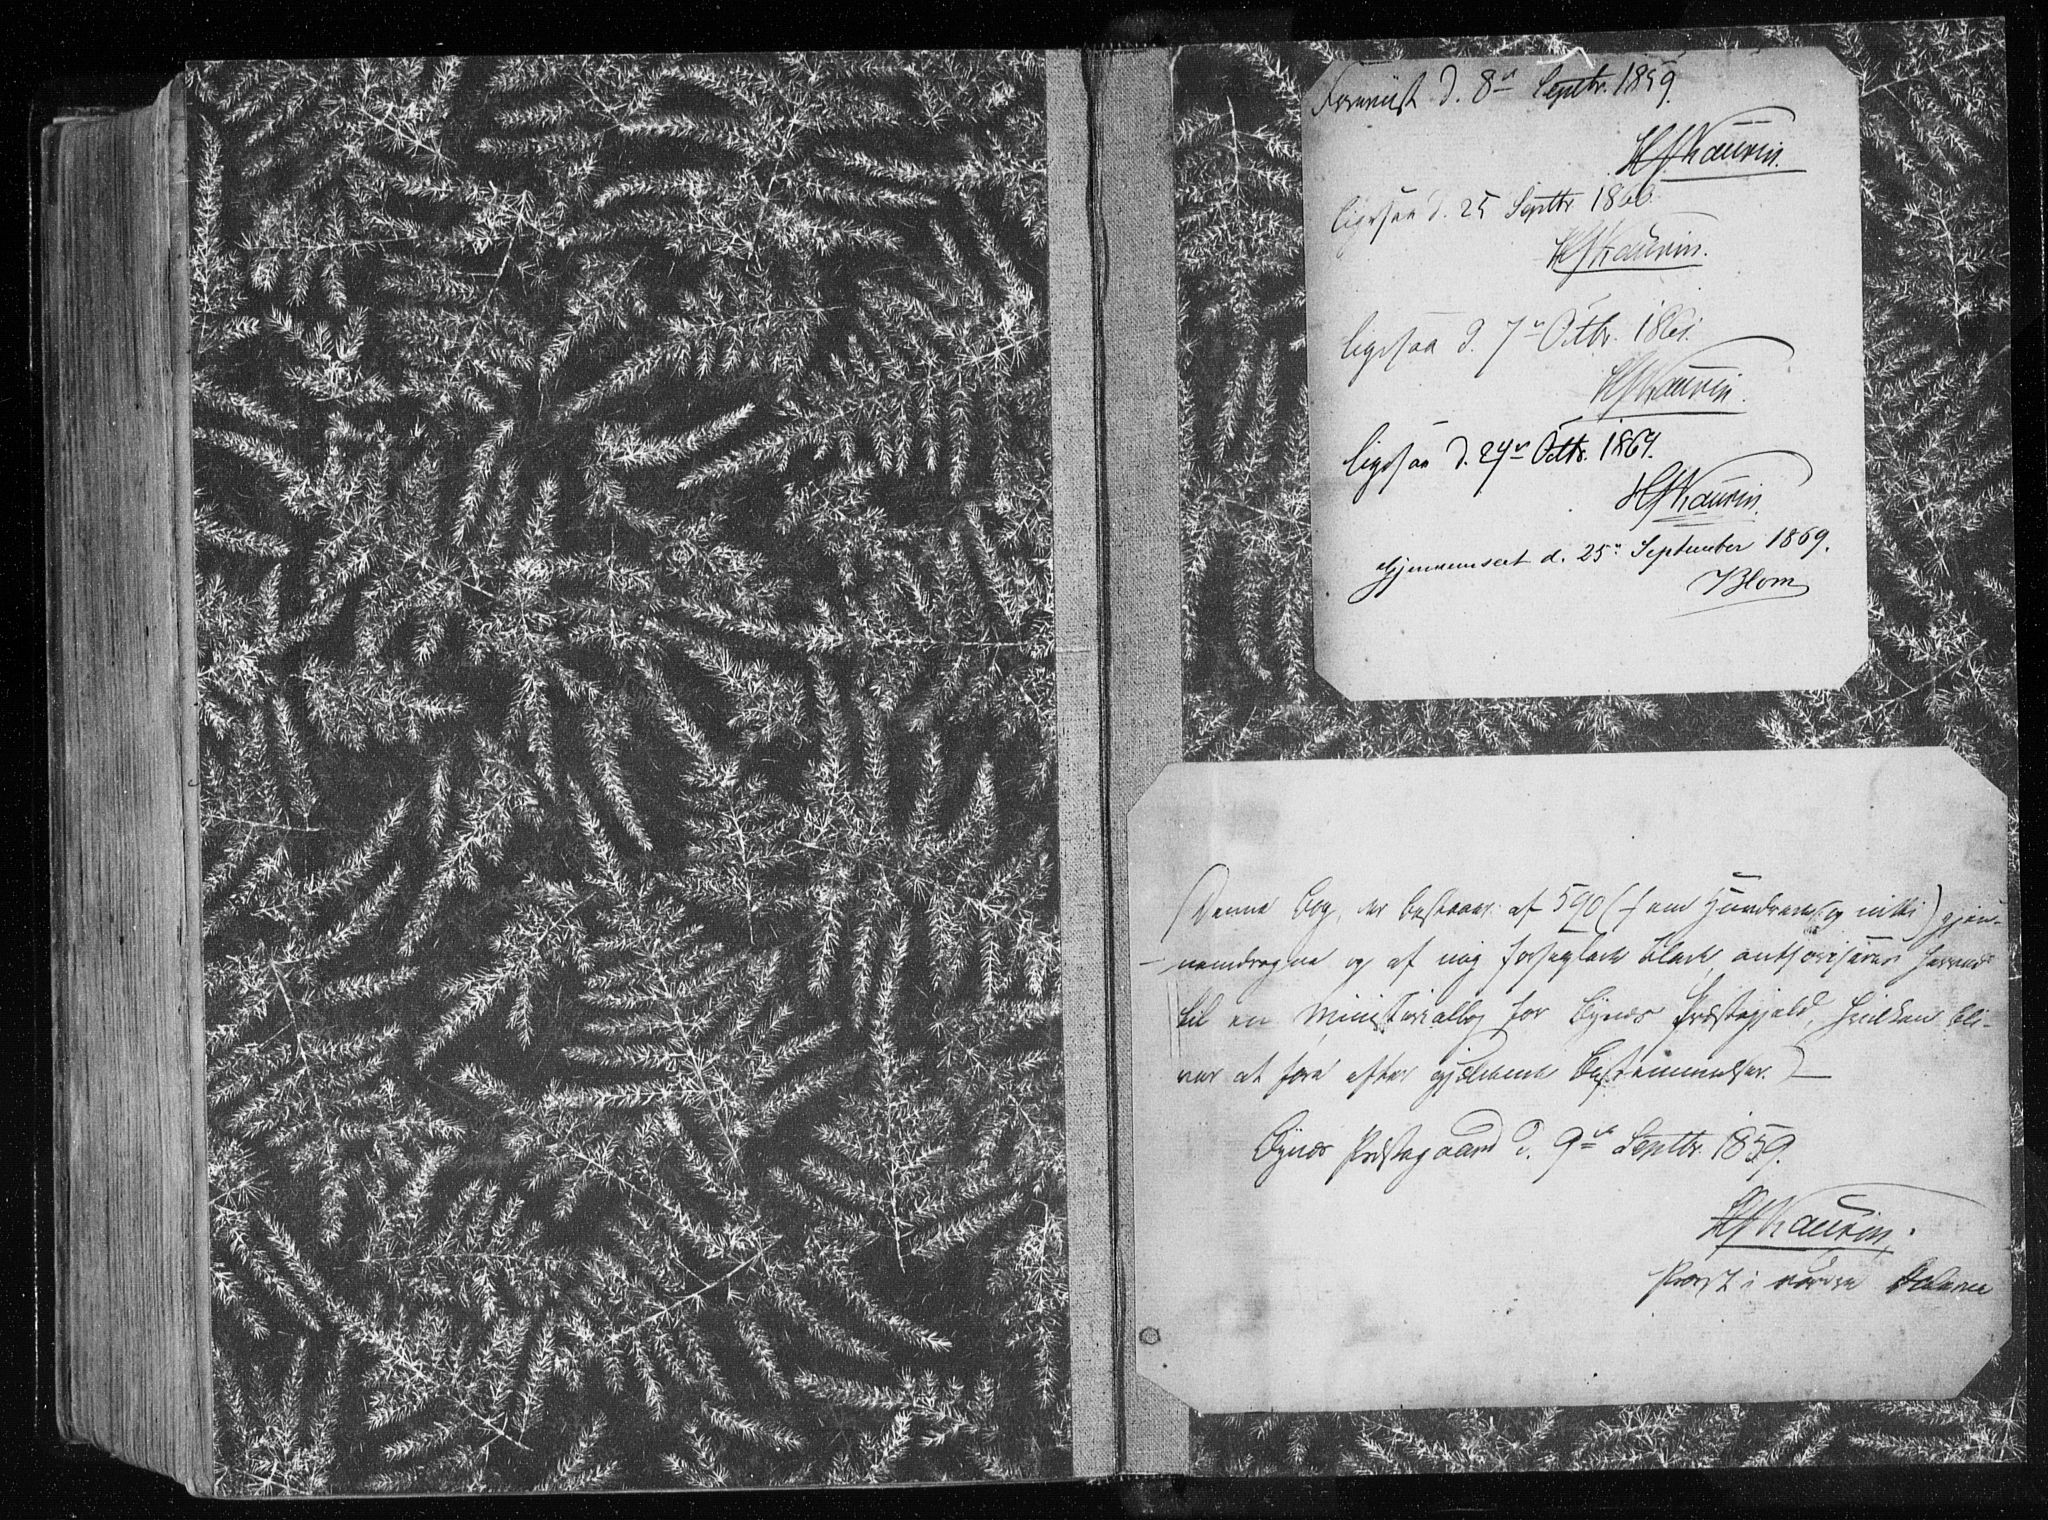 Foreviist d. 8de Septbr. 1859.
HJKaurin.
ligesaa d. 25 Septbr 1860.
HJKaurin.
ligesaa d. 7de Octbr. 1861.
HJKaurin.
ligesaa d. 24de Octbr. 1864.
HJKaurin.
Gjennemseet d. 25de September 1869.
Blom
Denne Bog, der bestaaer af 590 (fem Hundrede og nitti) gjen-
nemdragne og af mig forseglede Blade, authoriseres herved
til en Ministerialbog for Bynes Præstegjeld, hvilken bli-
ver at føre efter gjældende Bestemmelser.
Bynes Præstegaard d. 9de Septbr. 1859.
HJKaurin.
Provst i nordre Dalerne